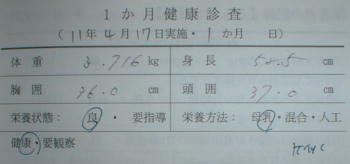 1か月健康診査
(11年4月17日実施・1か月 日)
体重 3.716kg 身長 52.5cm
胸囲 36.0cm 頭囲 37.0cm
栄養状態:良・要指導 栄養方法:母乳・混合・人工
健康・要観察